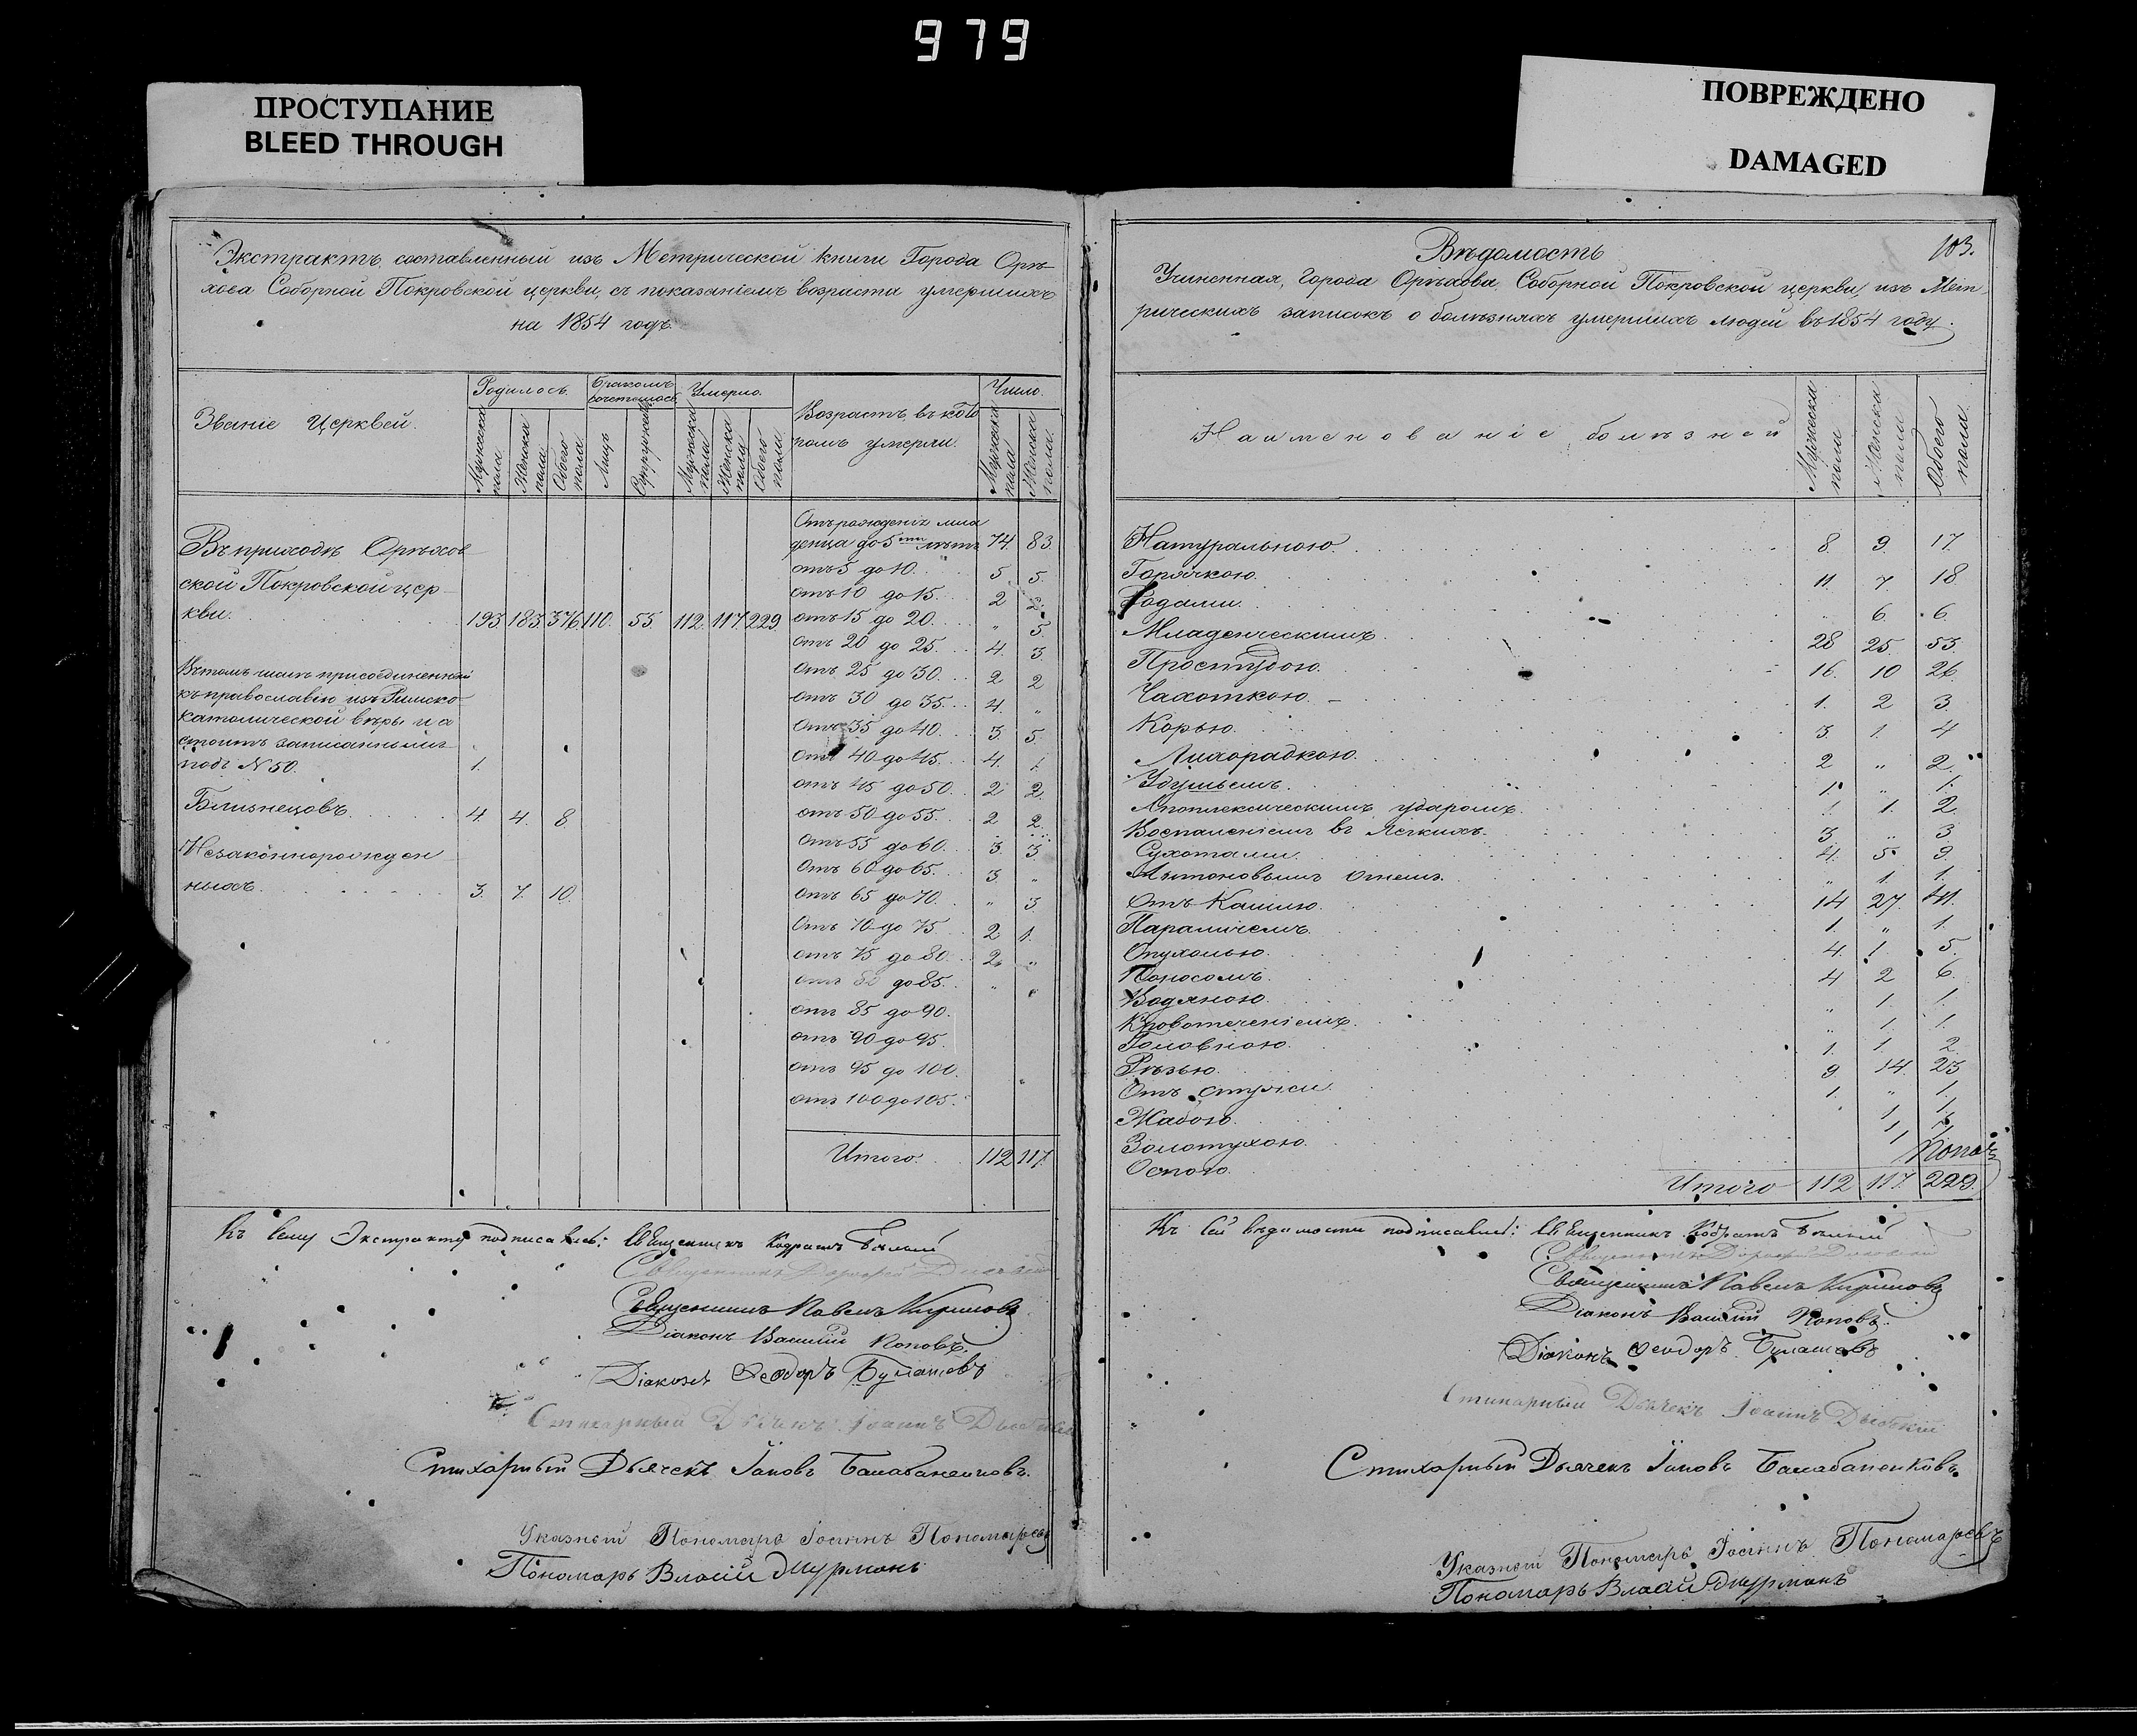 979
ПРОСТУПАНИЕ
BLEED THROUGH
ПОВРЕЖДЕНО
DAMAGED
Экстрактъ, составленный изъ Метрической книги Города Орѣ-
хова Соборной Покровской церкви, съ показаніемъ возраста умершихъ
на 1854 годъ.
Званіе Церквей.
Родилось.
Бракомъ сочеталось
Умерло.
Возрастъ, въ кото
ромъ умерли.
Число.
Мужеска пола
Женска пола
Обоего пола
Лицъ
Супружествъ
Мужеска пола
Женска пола
Обоего пола
Мужеска пола
Женска пола
Въ приходѣ Орѣхов-
ской Покровской цер-
кви. 193. 183. 376. 110. 55. 112. 117. 229.
Въ томъ числѣ присоединенный
къ православію изъ Римско-
католической вѣры
стоитъ записаннымъ
подъ N 50. 1.
Близнецовъ. 4. 4. 8.
Незаконнорожден-
ныхъ. 3. 7. 10.
Отъ рожденія мла
денца до 5ти лѣтъ 74. 83.
отъ 5 до 10. 5 5.
отъ 10 до 15. 2 2.
отъ 15 до 20. „ 5.
отъ 20 до 25. 4. 3.
отъ 25 до 30. 2 2
отъ 30 до 35. 4. „
отъ 35 до 40. 3. 5.
отъ 40 до 45. 4. 1.
отъ 45 до 50. 2 2.
отъ 50 до 55. 2 2.
отъ 55 до 60. 3. 3
отъ 60 до 65. 3. „
отъ 65 до 70. „ 3.
отъ 70 до 75. 2 1.
отъ 75 до 80. 2. „
отъ 80 до 85. „
отъ 85 до 90.
отъ 90 до 95.
отъ 95 до 100.
отъ 100 до 105.
Итого. 112 117.
Къ сему Экстракту подписались: Священникъ Кодратъ Бѣлый
Священникъ
Священникъ Павелъ Кириловъ
Діаконъ Василій Поповъ.
Діаконъ Ѳеодоръ Булашовъ
Стихарный Дьячекъ Іоаннъ
Стихарный Дьячекъ Іаковъ Балабаненковъ.
Указный Пономарь Іоаннъ Пономаревъ
Пономарь Власій Фурманъ
103.
Вѣдомость
Учиненная, Города Орѣхова, Соборной Покровской церкви, изъ Мет-
рическихъ записокъ о болѣзняхъ умершихъ людей въ 1854 году.
Наименованіе болѣзней
Мужеска пола
Женска пола
Обоего пола.
Натуральною. 8. 9. 17.
Горячкою. 11. 7. 18
Родами. 6. 6.
Младенческимъ. 28 25. 53.
Простудою. 16. 10 26.
Чахоткою. 1. 2 3.
Корью. 3. 1. 4
Лихорадкою. 2 „ 2.
Удушьемъ. 1. „ 1.
Апоплексическимъ ударомъ. 1. 1. 2.
Воспаленіемъ въ легкихъ. 3 „ 3
Сухотами. 4. 5. 9.
Антоновымъ огнемъ. „ 1. 1.
Отъ Кашлю. 14 27. 41.
Параличемъ. 1. „ 1.
Опухолью. 4. 1. 5.
Поносомъ. 4 2 6.
Водяною. „ 1. 1.
Кровотеченіемъ. „ 1. 1.
Головною. 1. 1. 2.
Рѣзью. 9. 14. 23
Отъ стужи. 1. „ 1.
Жабою. 1. 1.
Золотухою. 1
Оспою.
Итого 112 117. 229.
Къ сей вѣдомости подписались: Священникъ Кодратъ Бѣлый
Священникъ
Священникъ Павелъ Кириловъ
Діаконъ Василій Поповъ.
Діаконъ Ѳеодоръ Булашовъ
Стихарный Дьячекъ Іоаннъ
Стихарный Дьячекъ Іаковъ Балабаненковъ.
Указный Пономарь Іоаннъ Пономаревъ
Пономарь Власій Фурманъ